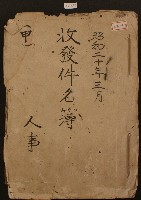 昭和二十年三月
收發件名簿
人事